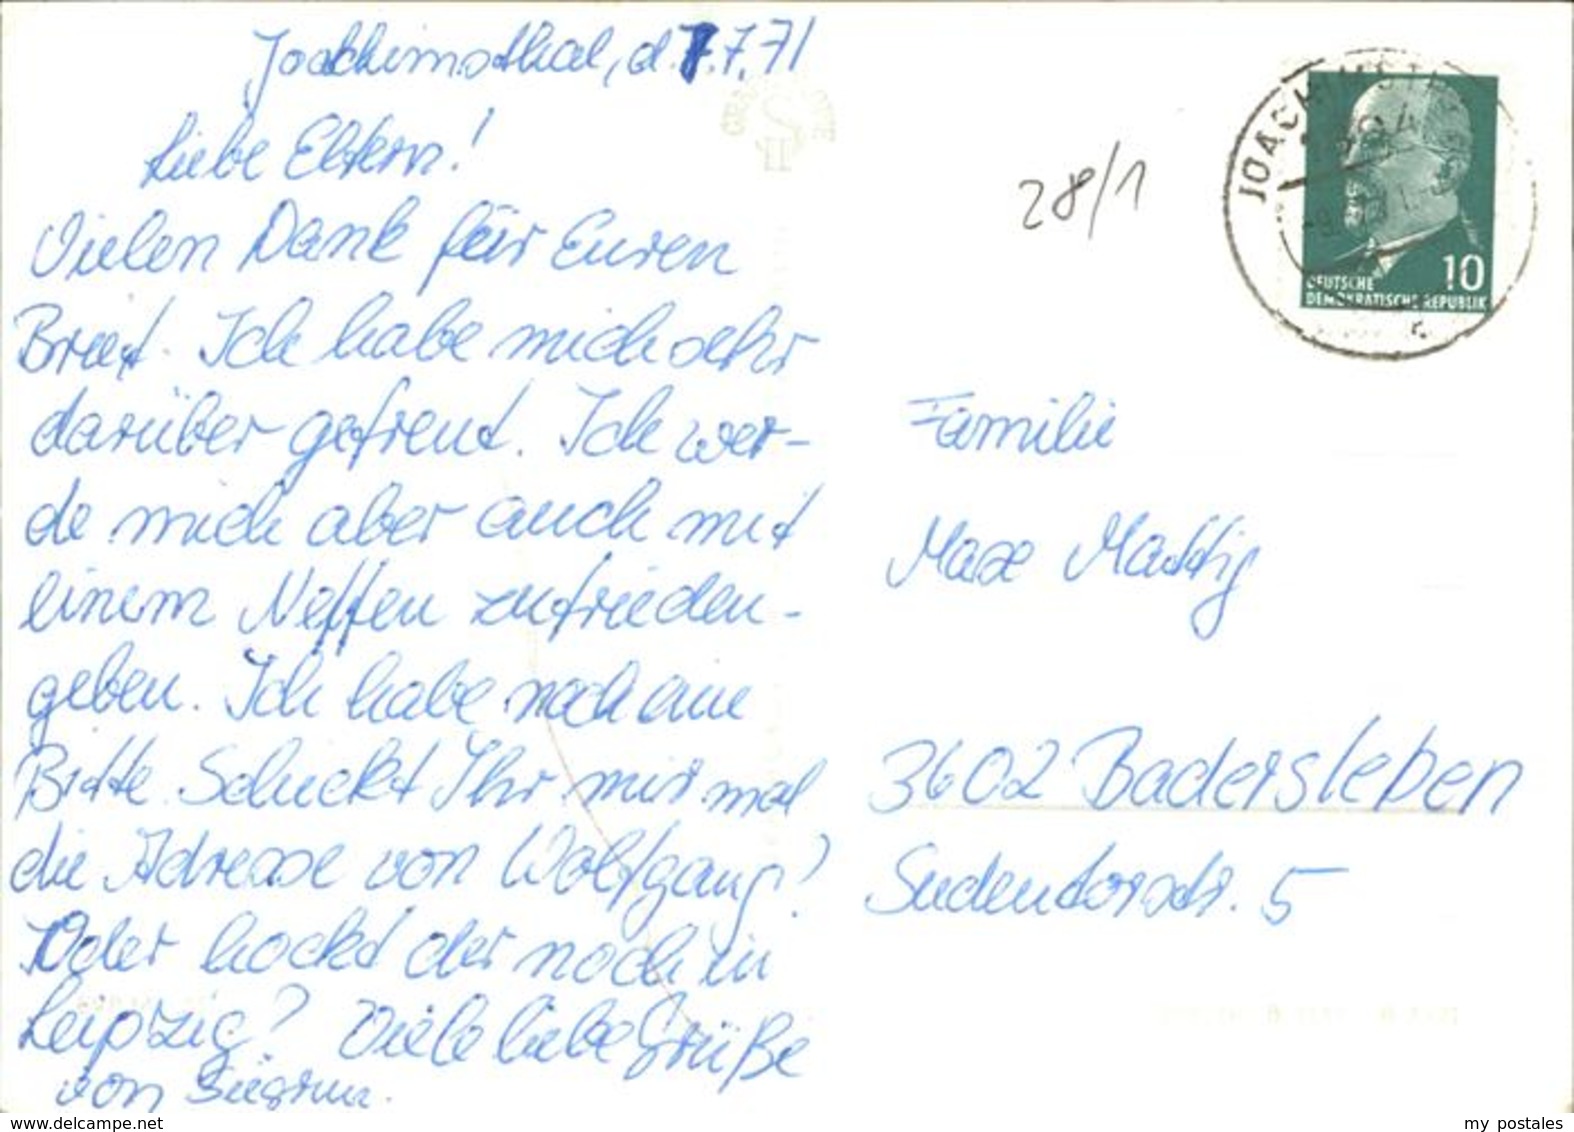 Joachimsthal, d. 7.7.71
Liebe Eltern!
Vielen Dank für Euren
Brief. Ich habe mich sehr
darüber gefreut. Ich wer-
de mich aber auch mit
einem Neffen zufrieden-
geben. Ich habe noch eine
Bitte. Schickt Ihr mir mal
die Adresse von Wolfgang?
Oder hockt der noch in
Leipzig? Viele liebe Grüße
von Siegrun.
28/1
10
DEUTSCHE
DEMOKRATISCHE REPUBLIK
Familie
Max Mattig
3602 Badersleben
Sudentorstr. 5
www.delcampe.net
my postales